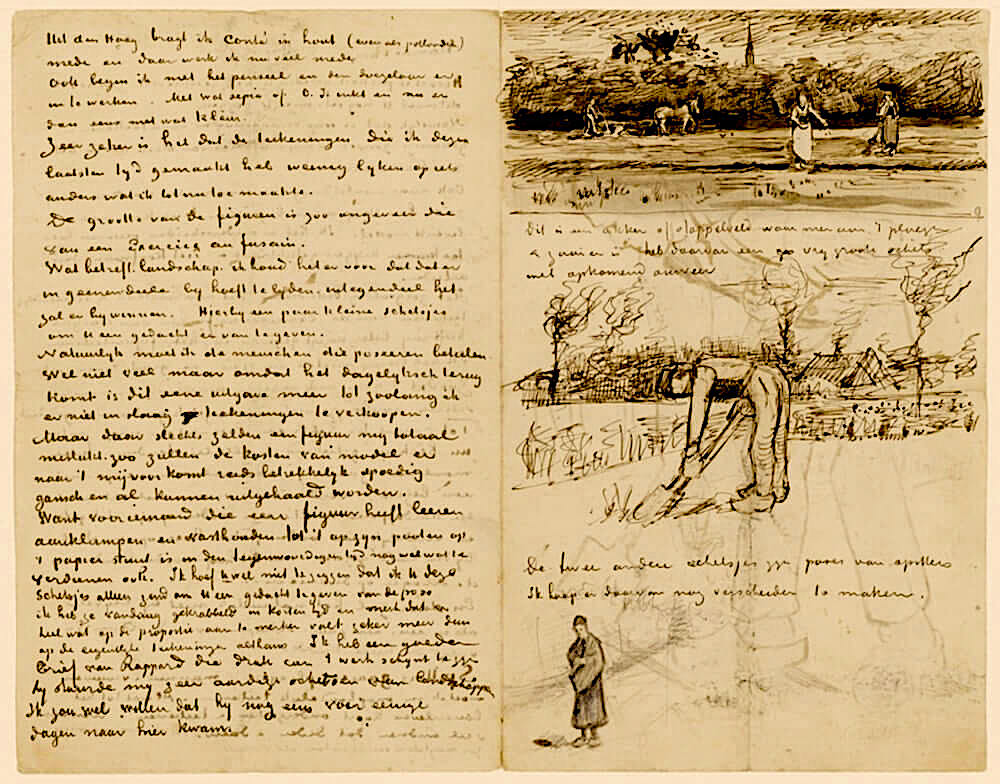 Uit den Haag bragt ik Conté in hout (even als potlooden)
mede en daar werk ik nu veel mede.
Ook begin ik met het penseel en den doezelaar er
in te werken. Met wat sepia of O.I. inkt en nu en
dan eens met wat kleur.
Zeer zeker is het dat de teekeningen die ik dezen
laatsten tijd gemaakt heb weinig lijken op iets
anders wat ik tot nu toe maakte.
De grootte van de figuren is zoo ongeveer die
van een Exercice au fusain.
Wat betreft landschap, ik houd het er voor dat dat er
in geenendeele bij hoeft te lijden. integendeel het
zal er bij winnen. Hierbij een paar kleine schetsjes
om U een gedacht er van te geven.
Natuurlijk moet ik de menschen die poseeren betalen.
Wel niet veel maar omdat het dagelijksch terug
komt is dit eene uitgave meer tot zoolang ik
er niet in slaag teekeningen te verkoopen.
Maar daar slechts zelden een figuur mij totaal
mislukt, zoo zullen de kosten van model er
naar 't mij voorkomt reeds betrekkelijk spoedig
gansch en al kunnen uitgehaald worden.
Want voor iemand die een figuur heeft leeren
aanklampen en vasthouden tot 't op zijn pooten op
't papier staat is in den tegenwoordigen tijd nog wel wat te
verdienen ook. Ik hoef U wel niet te zeggen dat ik U deze
schetsjes alleen zend om U een gedacht te geven van de pose
ik heb ze vandaag gekrabbeld in korten tijd en merk dat er
heel wat op de proportie aan te merken valt zeker meer dan
op de eigentlijke teekeningen althans. Ik heb een goeden
brief van Rappard die druk aan 't werk schijnt te zijn
hij stuurde mij zeer aardige schetsen van landschappen
Ik zou wel willen dat hij nog eens voor eenige
dagen naar hier kwam.
Dit is een akker of stoppelveld waar men aan 't ploegen
& zaaien is heb daarvan een vrij groote schets
met opkomend onweer
De twee andere schetsjes zijn poses van spitters
Ik hoop er daarvan nog verscheiden te maken.